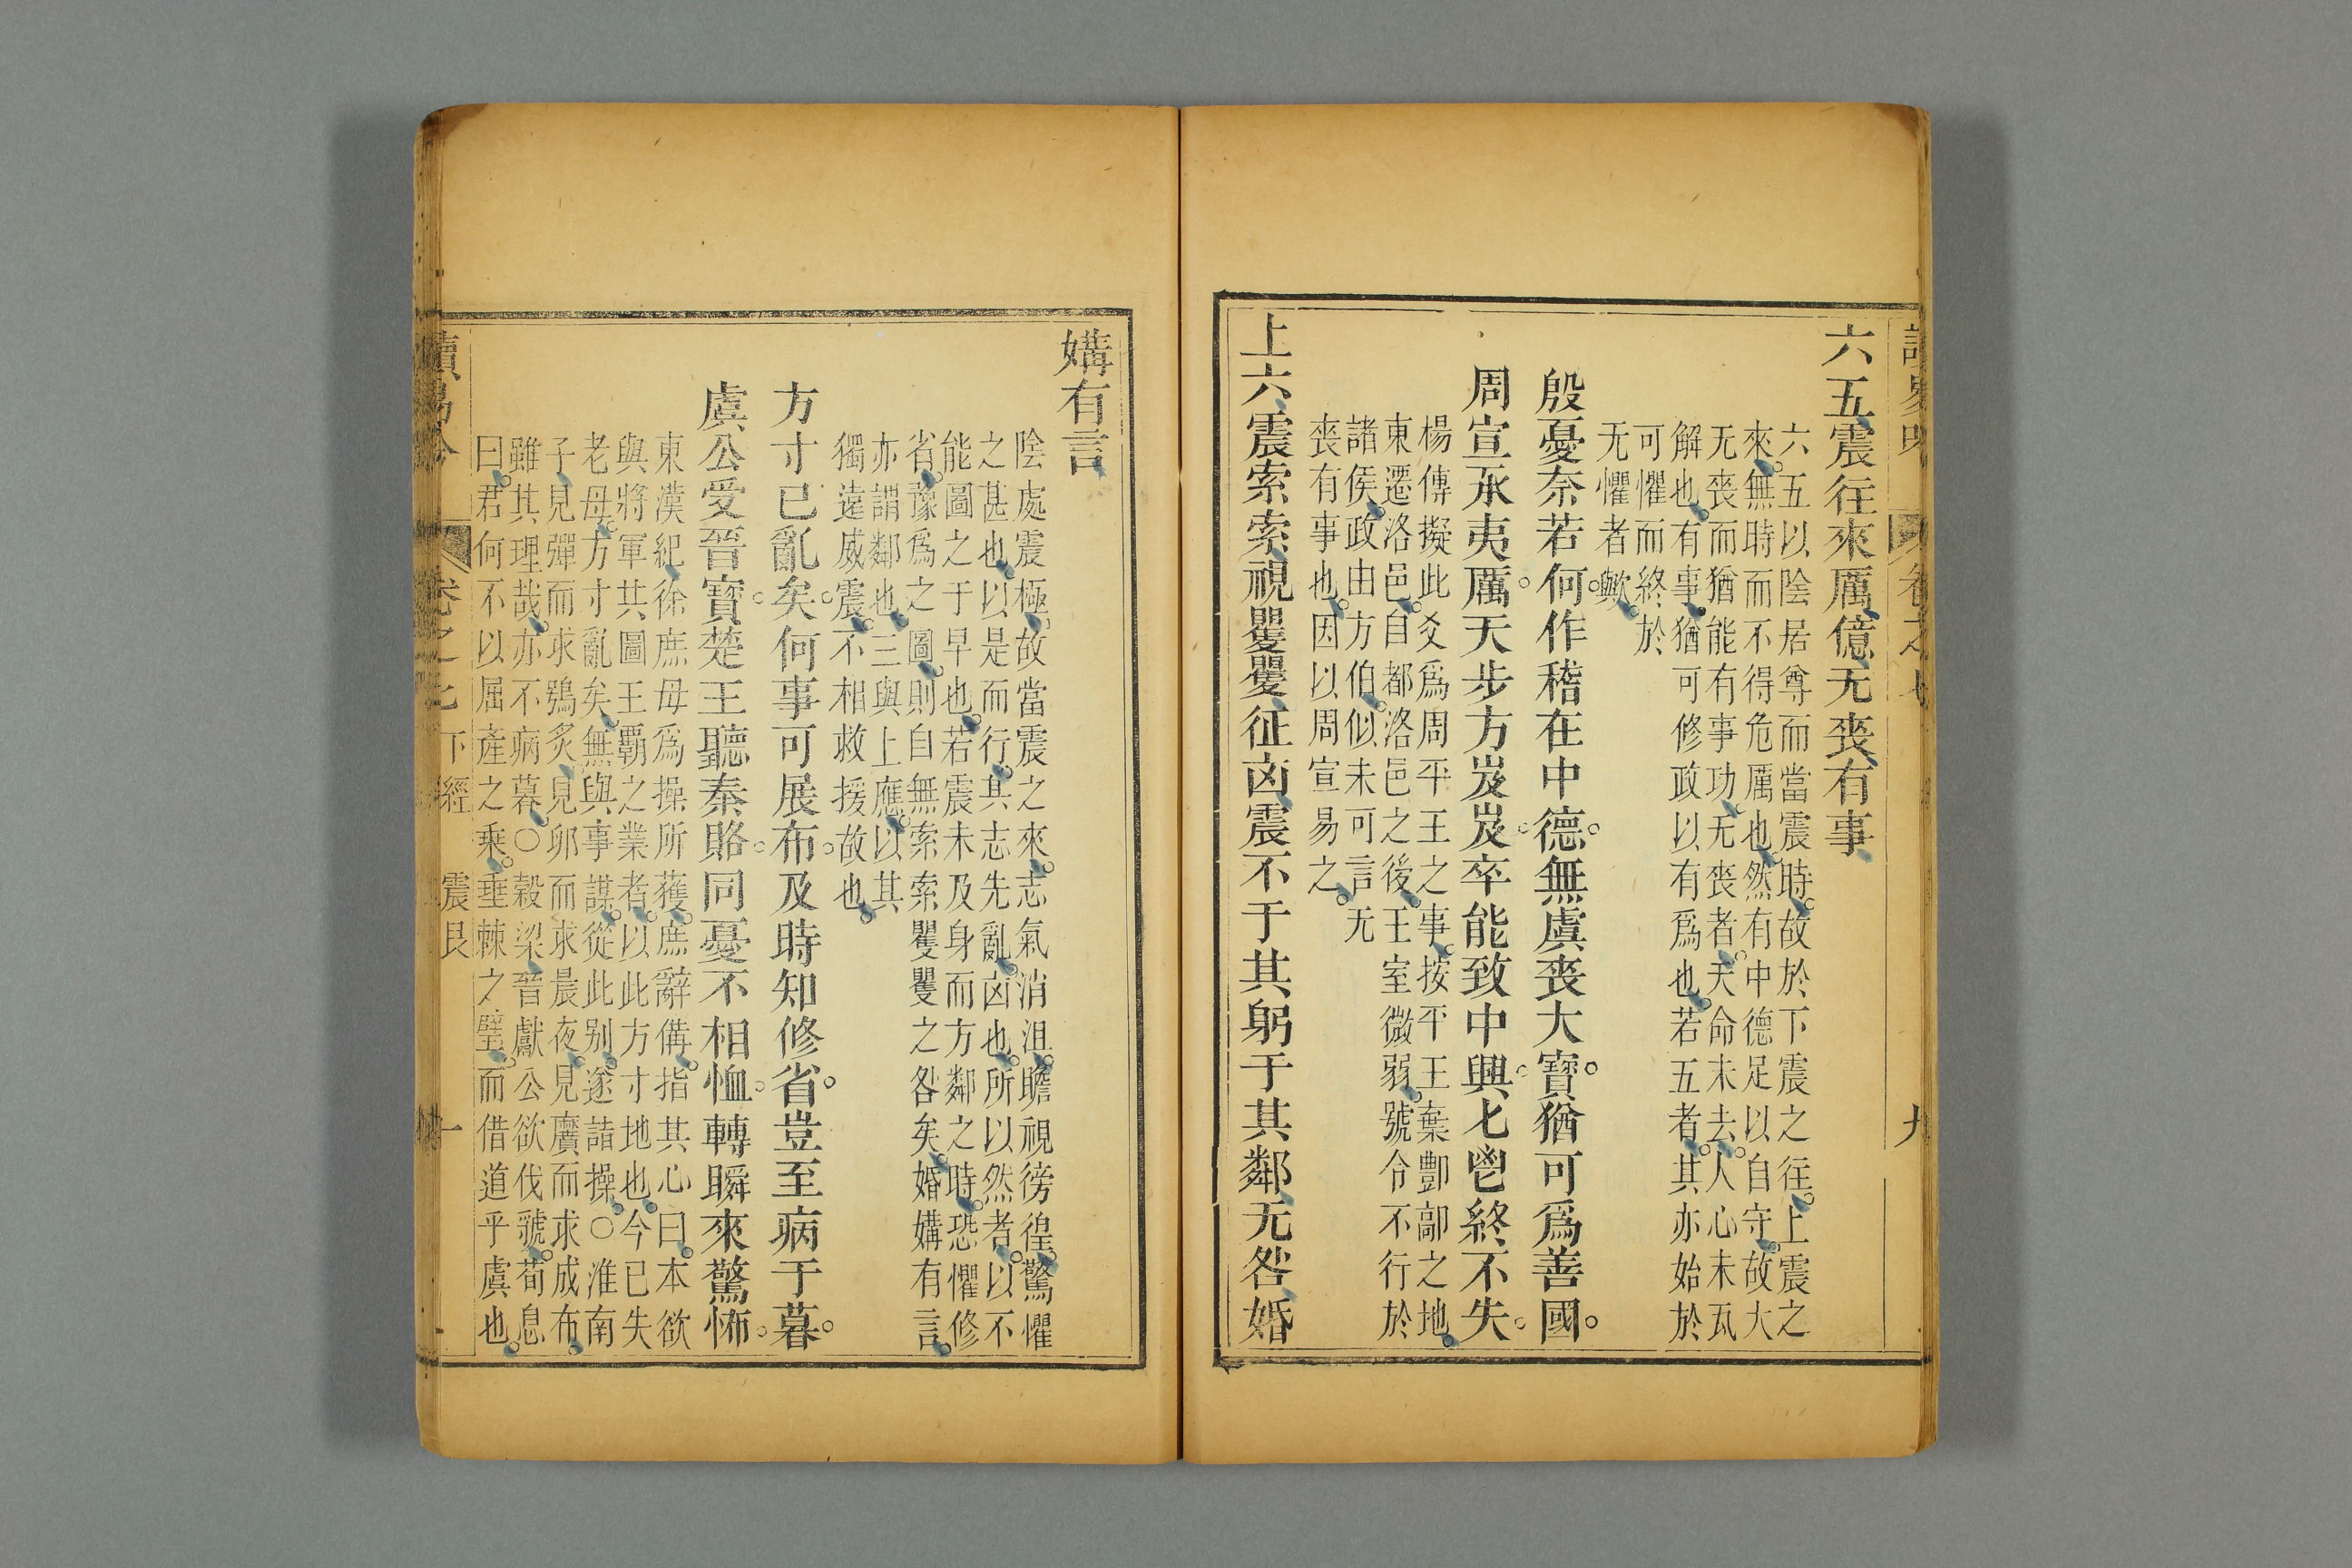 卷之七 九
六五震往來厲億无喪有事
六五以陰居尊而當震時故於下震之往上震之
來無時而不得危厲也然有中德足以自守故大
无喪而猶能有事功无喪者天命未去人心未瓦
解也有事猶可修政以有爲也若五者其亦始於
可懼而終於
无懼者歟
殷憂奈若何作稽在中德無虞喪大寶猶可爲善國
周宣承夷厲天步方岌岌卒能致中興匕鬯終不失
楊傳擬此爻爲周平王之事按平王棄酆鄗之地
東遷洛邑自都洛邑之後王室微弱號令不行於
諸侯政由方伯似未可言无
喪有事也因以周宣易之
上六震索索視矍矍征凶震不于其躬于其鄰无咎婚
媾有言
陰處震極故當震之來志氣消沮瞻視徬徨驚懼
之甚也以是而行其志先亂凶也所以然者以不
能圖之于早也若震未及身而方鄰之時恐懼修
省豫爲之圖則自無索索矍矍之咎矣婚媾有言
亦謂鄰也三與上應以其
獨遠威震不相救援故也
方寸已亂矣何事可展布及時知修省豈至病于暮
虞公受晉寶楚王聽秦賂同憂不相恤轉瞬來驚怖
東漢紀徐庶母爲操所獲庶辭備指其心曰本欲
與將軍共圖王霸之業者以此方寸地也今已失
老母方寸亂矣無與事謀從此別遂詣操○淮南
子見彈而求鴞炙見卵而求晨夜見黂而求成布
雖其理哉亦不病暮○穀梁晉獻公欲伐虢荀息
曰君何不以屈產之乘垂棘之璧而借道乎虞也
讀易吟 卷之七 下經 震艮 十